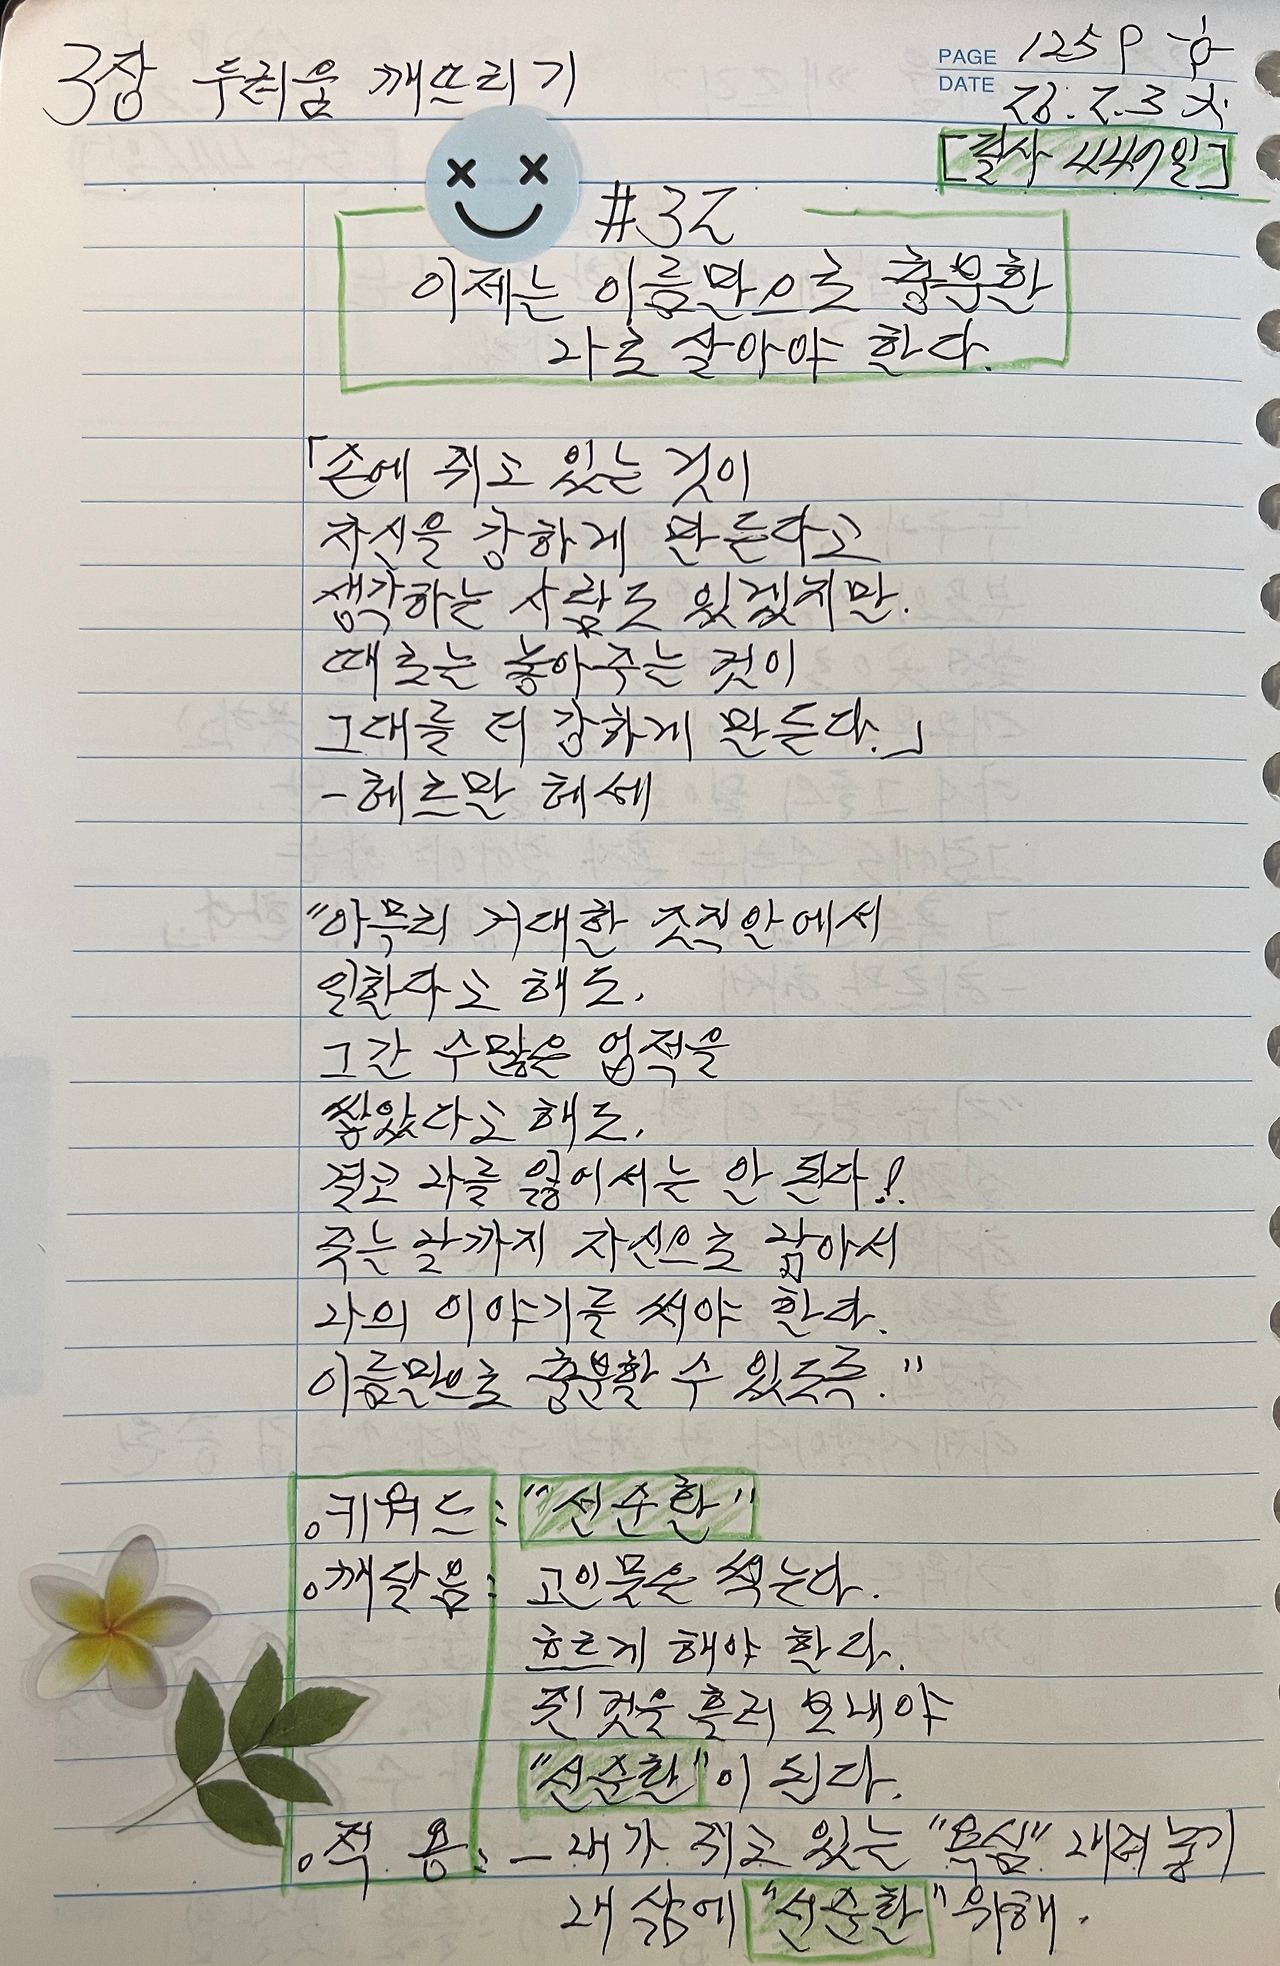 3장 두려움 깨뜨리기
PAGE 125 P
DATE 26. 2. 3 화
[필사 449일]
#32
이제는 이름만으로 충분한
나로 살아야 한다.
「손에 쥐고 있는 것이
자신을 강하게 만든다고
생각하는 사람도 있겠지만.
때로는 놓아주는 것이
그대를 더 강하게 만든다.」
-헤르만 헤세
"아무리 거대한 조직안에서
일한다고 해도.
그간 수많은 업적을
쌓았다고 해도.
결코 나를 잃어서는 안 된다!
죽는 날까지 자신으로 남아서
나의 이야기를 써야 한다.
이름만으로 충분할 수 있도록."
키워드: "선순환"
깨달음: 고인물은 썩는다.
흐르게 해야 한다.
쥔 것을 흘려 보내야
"선순환"이 된다.
적 용: - 내가 쥐고 있는 "욕심" 내려 놓기
내 삶에 "선순환" 위해.